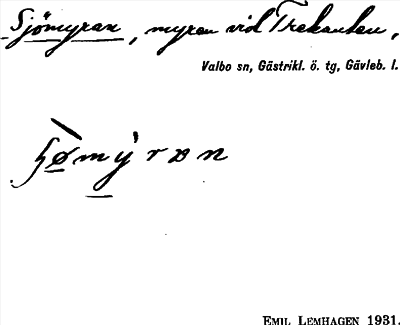 Sjömyran, myren vid Trekanten,
Valbo sn, Gästrikl. ö. tg, Gävleb. l.
EMIL LEMHAGEN 1931.